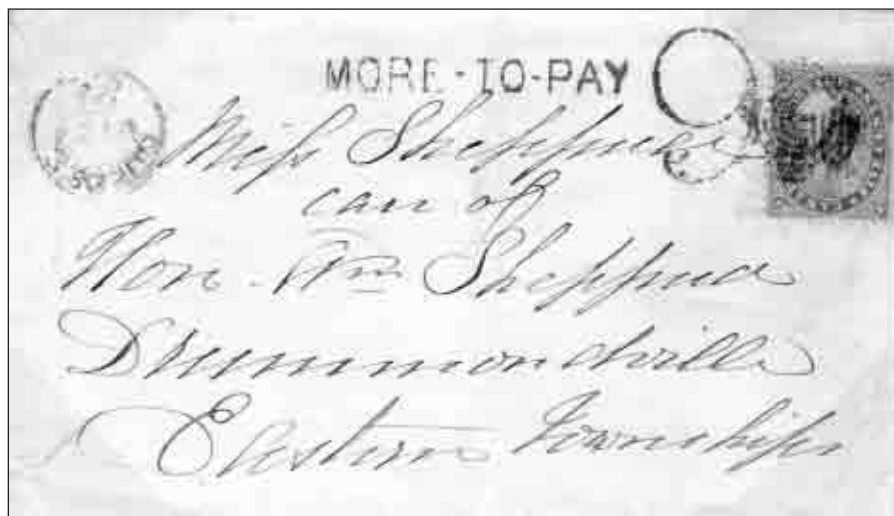 MORE-TO-PAY
Miss Sheppard
care of
Hon. Wm Sheppard
Drummondville
Eastern Townships